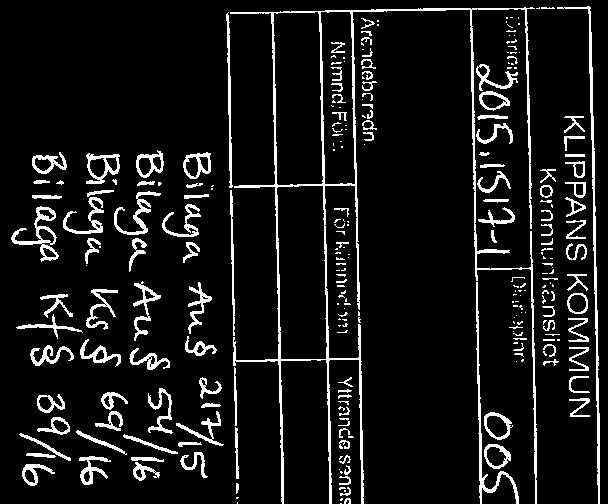 KLIPPANS KOMMUN
Kommunkansliet
Diarienr Diarieplan
2015.1517-1 005
Ärendeberedn.
Nämnd/Förv. För kännedom Yttrande senas
Bilaga Au § 217/15
Bilaga Au § 54/16
Bilaga Ks § 69/16
Bilaga Kf § 39/16